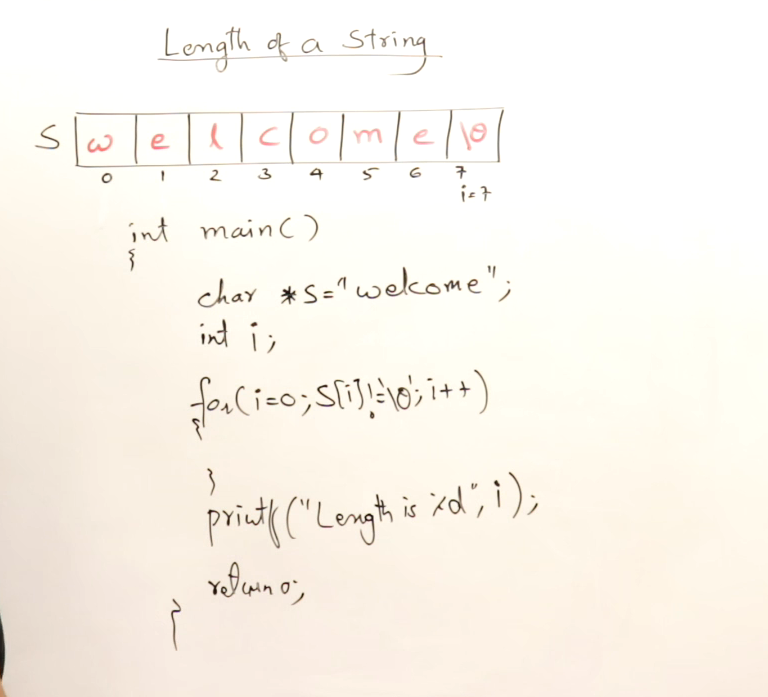 Length of a String
S w e l c o m e \0
0 1 2 3 4 5 6 7
i=7
int main()
{
char *S="welcome";
int i;
for(i=0;S[i]!='\0';i++)
{
}
printf("Length is %d",i);
return 0;
}